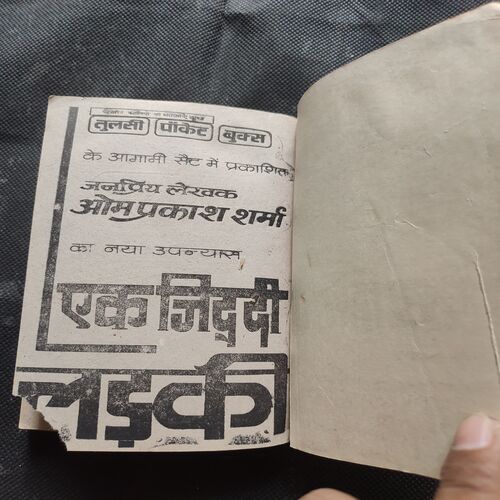 तुलसी पॉकेट बुक्स
के आगामी सैट में प्रकाशित
जनप्रिय लेखक
ओम प्रकाश शर्मा
का नया उपन्यास
एक जिद्दी
लड़की